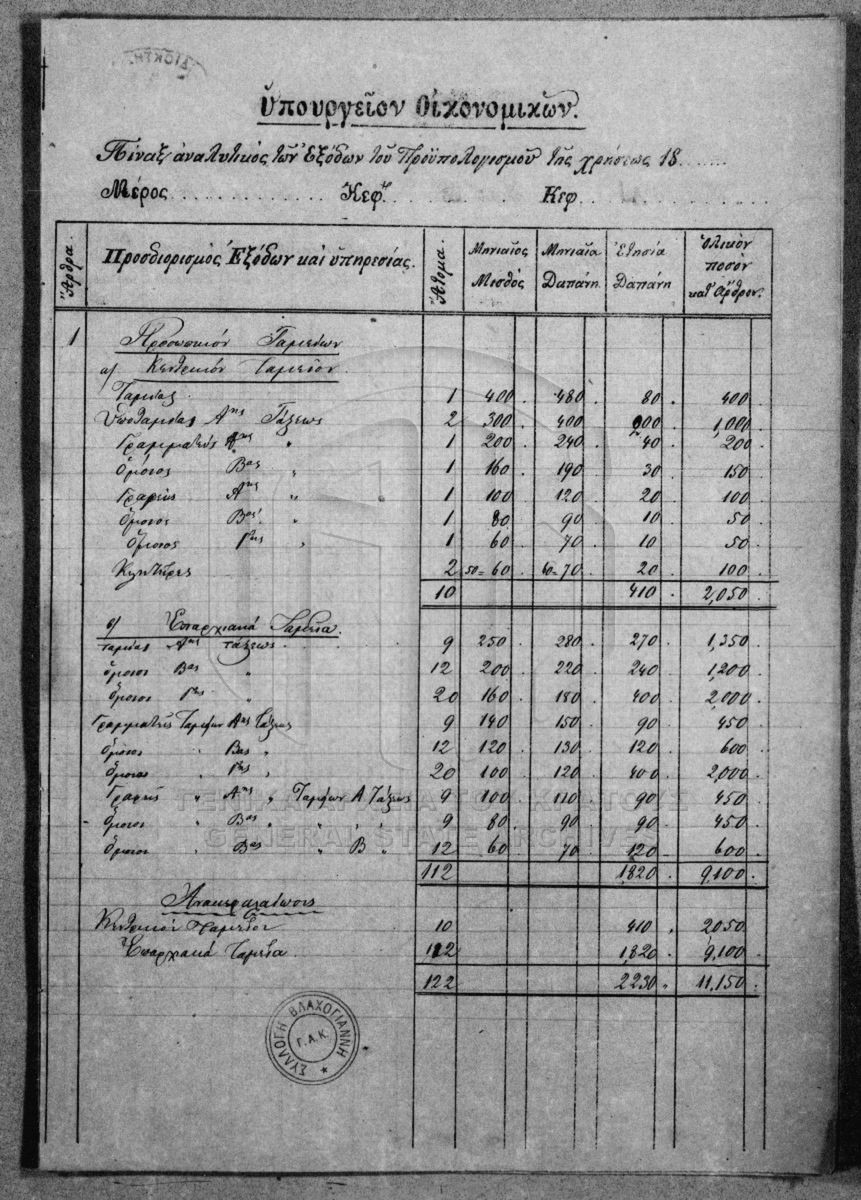 Ὑπουργεῖον Οἰκονομικῶν.
Πίναξ ἀναλυτικὸς τῶν Ἐξόδων τοῦ Προϋπολογισμοῦ τῆς χρήσεως 18......
Μέρος .................. Κεφ. .................. Κεφ. ..................
Ἄρθρα. Προσδιορισμὸς Ἐξόδων καὶ ὑπηρεσίας. Ἄτομα. Μηνιαῖος Μισθὸς Μηνιαία Δαπάνη Ἐτησία Δαπάνη Ὁλικὸν ποσὸν κατ' Ἄρθρον.
1 Προσωπικόν Ταμείων
α) Κεντρικόν Ταμεῖον
Ταμίας 1 400 480 80 400
Ὑποταμίας Αης Τάξεως 2 300 400 200 1,000
Γραμματεύς Αης " 1 200 240 40 200
Ὅμοιος Βας " 1 160 190 30 150
Γραφεύς Αης " 1 100 120 20 100
Ὅμοιος Βας " 1 80 90 10 50
Ὅμοιος Γης " 1 60 70 10 50
Κλητῆρες 2 50=60 60=70 20 100
10 410 2,050
β) Ἐπαρχιακά Ταμεῖα.
Ταμίας Αης τάξεως 9 250 280 270 1,350
ὅμοιος Βας " 12 200 220 240 1,200
ὅμοιος Γης " 20 160 180 400 2,000
Γραμματεῖς Ταμείων Αης Τάξεως 9 140 150 90 450
ὅμοιος " Βας " 12 120 130 120 600
ὅμοιος " Γης " 20 100 120 400 2,000
Γραφεῖς " Αης " Ταμείων Α Τάξεως 9 100 110 90 450
ὅμοιος " Βας " " " 9 80 90 90 450
ὅμοιος " Βας " Β " 12 60 70 120 600
112 1,820 9,100
Ἀνακεφαλαίωσις
Κεντρικόν Ταμεῖον 10 410 2050
Ἐπαρχιακά Ταμεῖα 112 1,820 9,100
122 2230 11,150
ΓΕΝΙΚΑ ΑΡΧΕΙΑ ΤΟΥ ΚΡΑΤΟΥΣ
GENERAL STATE ARCHIVES
ΣΥΛΛΟΓΗ ΒΛΑΧΟΓΙΑΝΝΗ
Γ.Α.Κ.